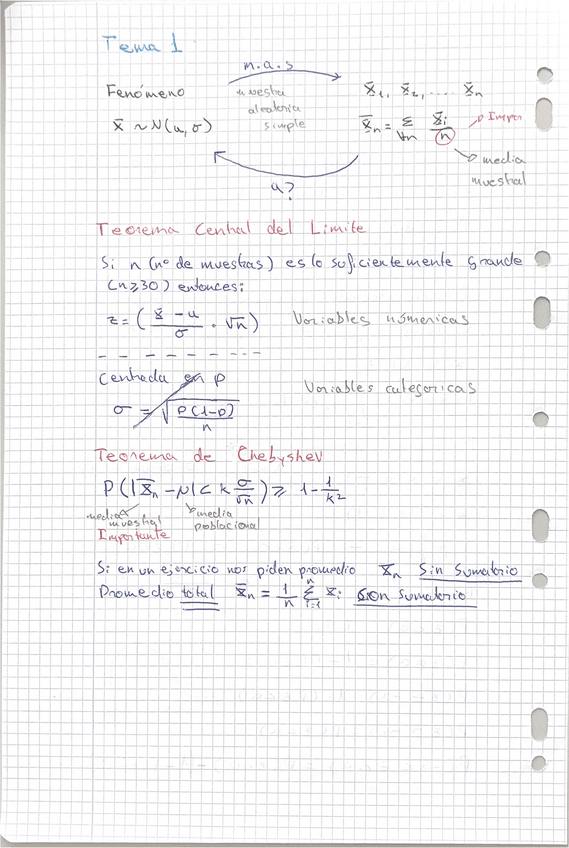 Tema 1
m.a.s
Fenómeno
muestra
aleatoria
simple
x̄ ~ N(u, σ)
x̄₁, x̄₂, .... x̄n
x̄n = Σ∀n x̄i/n
Impor
media
muestral
u?
Teorema Central del Limite
Si n (nº de muestras) es lo suficientemente grande
(n≥30) entonces:
z = ( x̄ - u / σ · √n )
Variables númericas
Centrada en p
Variables categoricas
σ = √ P(1-p) / n
Teorema de Chebyshev
P(|x̄n - μ| < k σ/√n) ≥ 1 - 1/k²
media
muestral
media
poblacional
Importante
Si en un ejercicio nos piden promedio x̄n Sin Sumatorio
Promedio total x̄n = 1/n Σ i=1 n xi Con Sumatorio